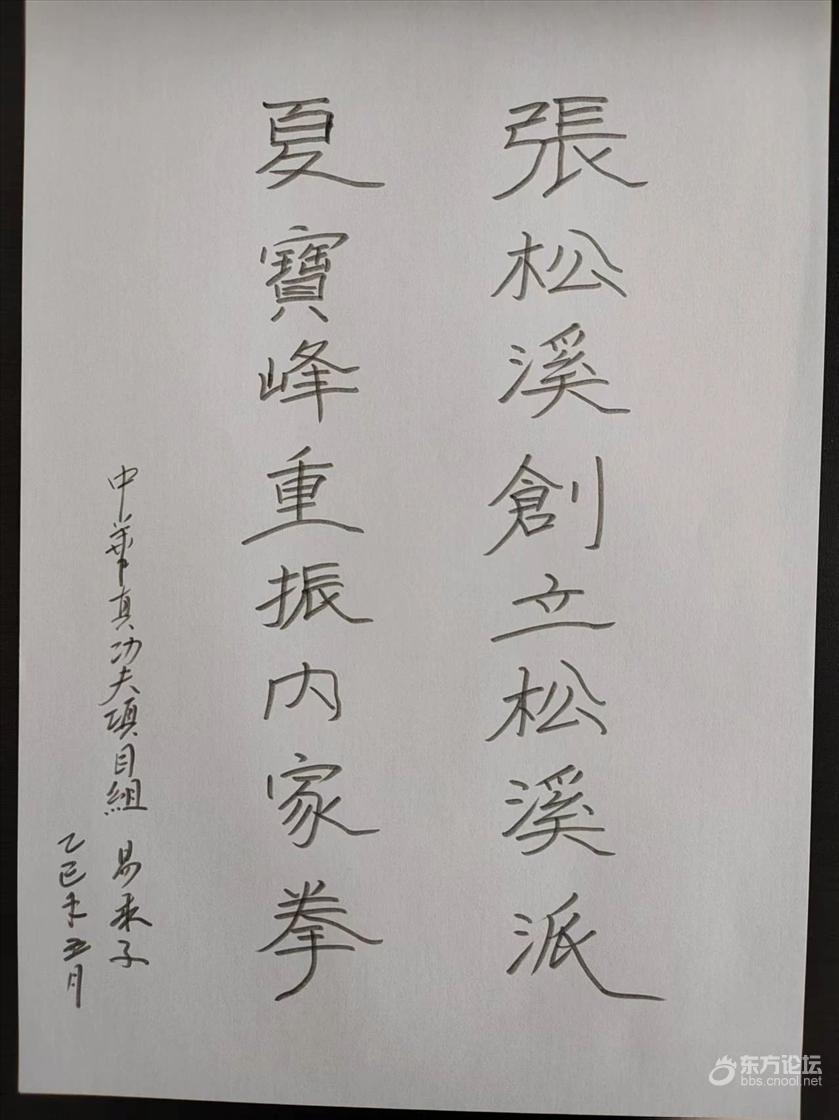 張松溪創立松溪派
夏寶峰重振内家拳
中華真功夫項目組 易来子
乙巳年五月
东方论坛
bbs.cnool.net